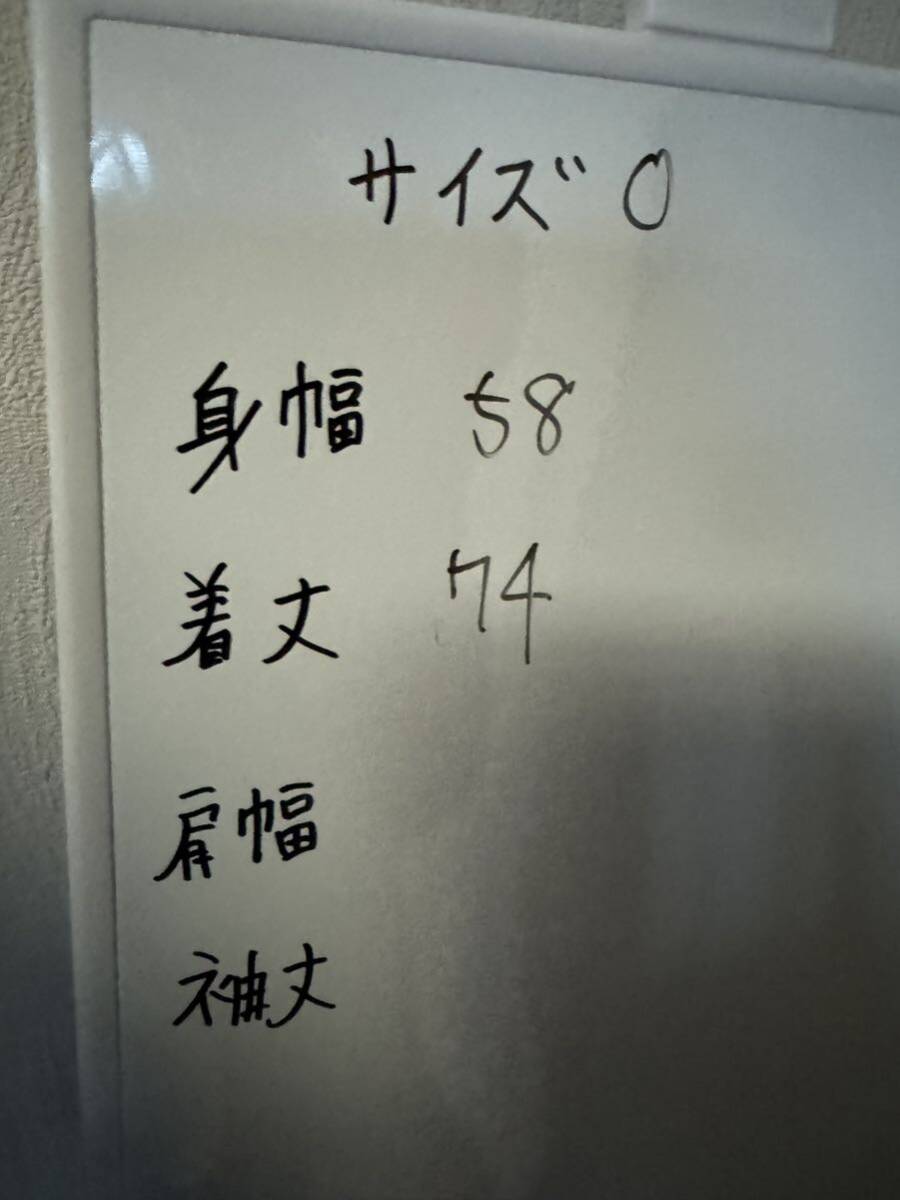 サイズ 0
身幅 58
着丈 74
肩幅
袖丈